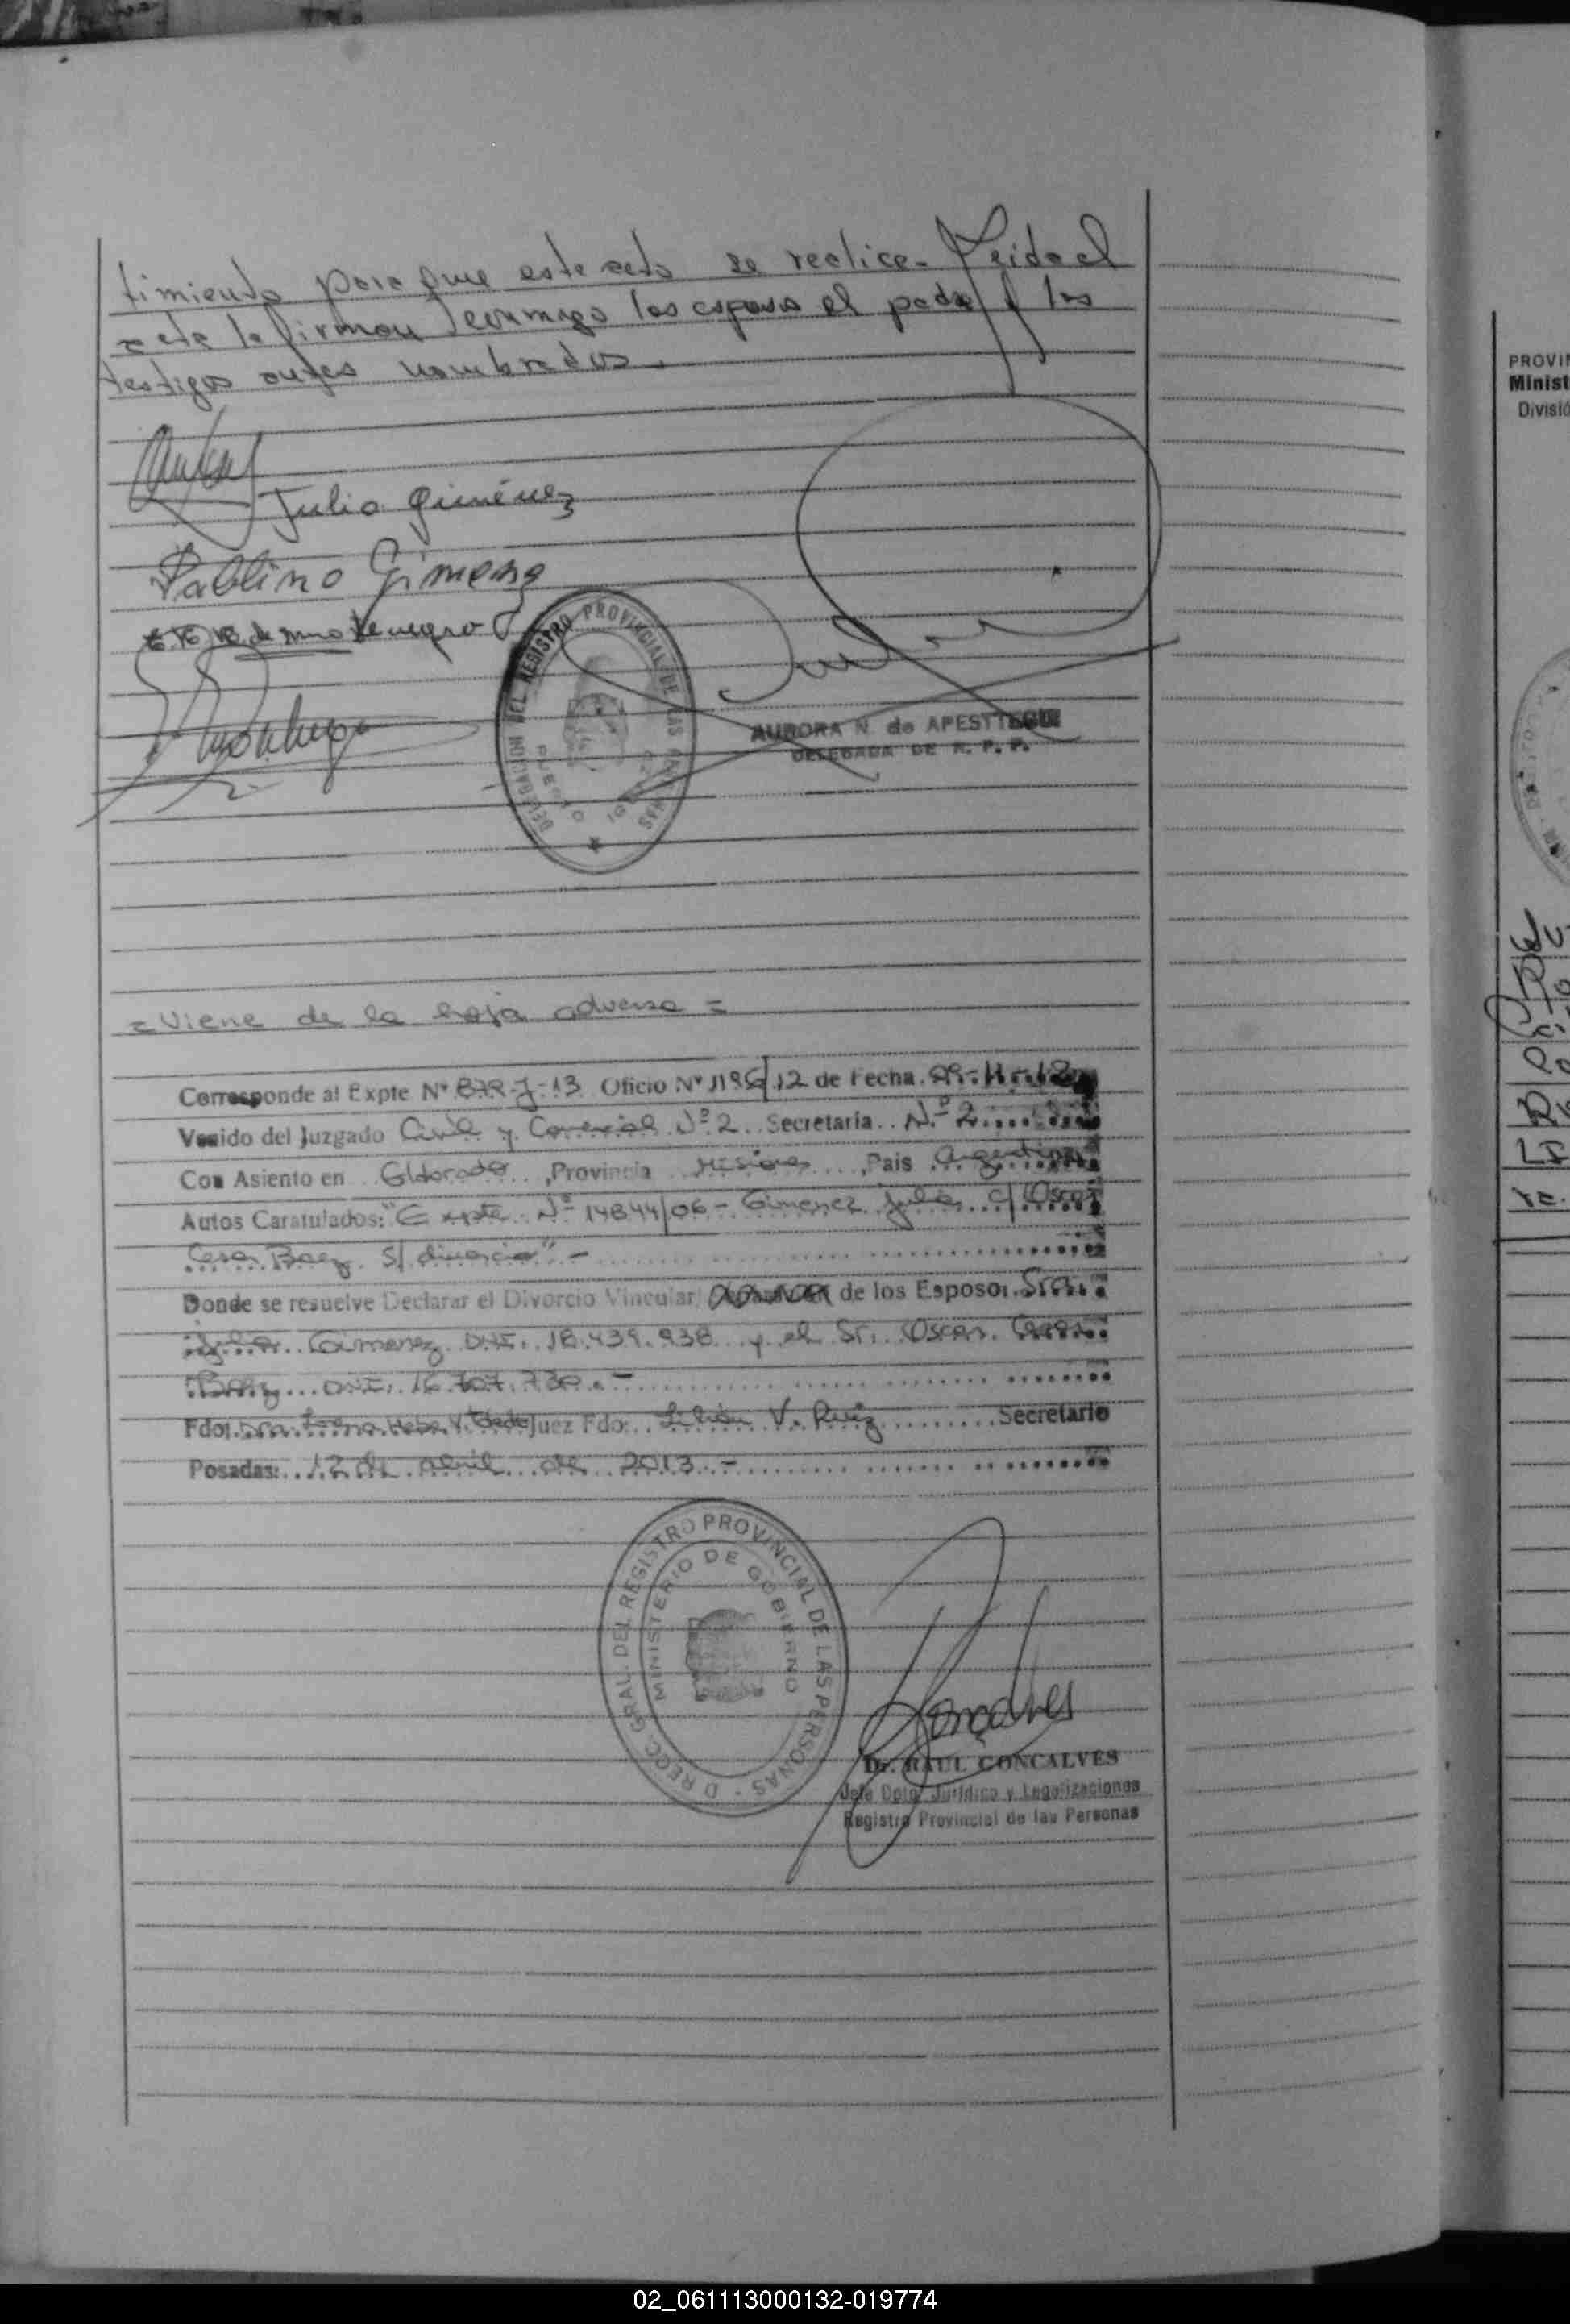 timiento para que este acto se realice. Leida el
acta la firman conmigo los esposos el padre y los
testigos antes nombrados.
Julia Giménez
Pablino Gimenez
de Montenegro
DELEGACION DEL REGISTRO PROVINCIAL DE LAS PERSONAS
PUERTO
AURORA N. de APESTEGUI
DELEGADA DE R. P. P.
= Viene de la hoja adversa =
Corresponde al Expte Nº 872-J-13 Oficio Nº 1196/12 de Fecha
Venido del Juzgado Civil y Comercial Nº 2 Secretaría Nº 2
Con Asiento en Eldorado, Provincia Misiones, País Argentina
Autos Caratulados: "Expte. Nº 14844/06 - Gimenez Julia c/ Oscar
Cesar Baez s/ divorcio" -
Donde se resuelve Declarar el Divorcio Vincular de los Esposos Sra.
Julia Gimenez DNI. 18.439.938 y el Sr. Oscar Cesar
Baez DNI. 16.707.730. -
Fdo: Dra. Juez Fdo: Lilián V. Ruiz Secretario
Posadas: 12 de abril de 2013 -
D RECC. GRAL. DEL REGISTRO PROVINCIAL DE LAS PERSONAS -
MINISTERIO DE GOBIERNO
Goncalves
Dr. RAUL GONCALVES
Jefe Dpto. Jurídico y Legalizaciones
Registro Provincial de las Personas
PROVIN
Minist
Divisió
02_061113000132-019774